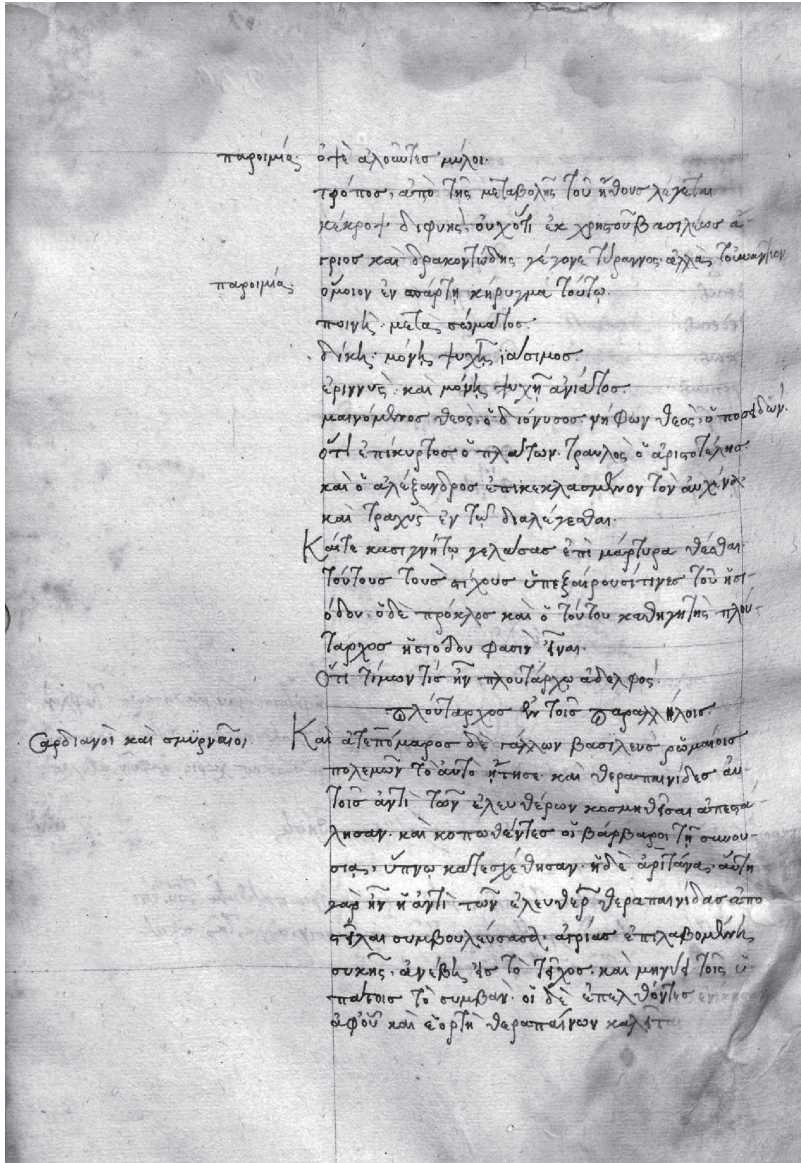 παροιμία· ὀψὲ ἀλοῦντες μύλοι·
τρόπος, ἀπὸ τῆς μεταβολῆς τοῦ ἤθους λέγεται
κέκροψ διφυὴς, οὐχ ὅτι ἐκ χρηστοῦ βασιλέως ἄ-
γριος καὶ δρακοντώδης γέγονε τύραννος· ἀλλὰ τοὐναντίον
παροιμία· ὅμοιον ἐν σπάρτῃ κήρυγμα τούτῳ.
ποινὴ· μετὰ σώματος.
δίκη· μόνης ψυχῆς ἰάσιμος.
ἐριννὺς· καὶ μόνης ψυχῆς ἀνιάτος.
μαινόμενος θεὸς, ὁ διόνυσος· νήφων θεὸς, ὁ ποσειδῶν.
ὅτι ἐπίκυρτος ὁ πλάτων· τραυλὸς ὁ ἀριστοτέλης·
καὶ ὁ ἀλέξανδρος ἐπικεκλασμένον τὸν αὐχένα
καὶ τραχὺς ἐν τῷ διαλέγεσθαι.
Καί τε κασιγνήτῳ γελάσας ἐπὶ μάρτυρα θέσθαι·
τούτους τοὺς στίχους ὑπεξαίρουσί τινες τοῦ ἡσι-
όδου. ὁ δὲ πρόκλος καὶ ὁ τούτου καθηγητὴς πλού-
ταρχος ἡσιόδου φασὶν εἶναι.
Ὅτι τίμων τίς ἦν πλουτάρχῳ ἀδελφός.
πλούταρχος ἐν τοῖς παραλλήλοις.
Σαρδιανοὶ καὶ σμυρναῖοι. Καὶ ἀτεπόμαρος δὲ γάλλων βασιλεὺς ῥωμαίοις
πολεμῶν τὸ αὐτὸ ᾔτησε καὶ θεραπαινίδες αὐ-
τοῖς ἀντὶ τῶν ἐλευθέρων κοσμηθεῖσαι ἀπεστά-
λησαν. καὶ κοπωθέντες οἱ βάρβαροι τῇ συνου-
σίας, ὕπνῳ κατεσχέθησαν. ἡ δὲ ἀριτάνα, αὕτη
γὰρ ἦν ἡ ἀντὶ τῶν ἐλευθέρων θεραπαινίδας ἀπο
στεῖλαι συμβουλεύσασα, ἀγρίας ἐπιλαβομένη
συκῆς· ἀνέβη εἰς τὸ τεῖχος. καὶ μηνύει τοῖς ὑ-
πάτοις τὸ συμβάν. οἱ δὲ ἐπελθόντες
ἀφ' οὗ καὶ ἑορτὴ θεραπαίνων καλεῖται